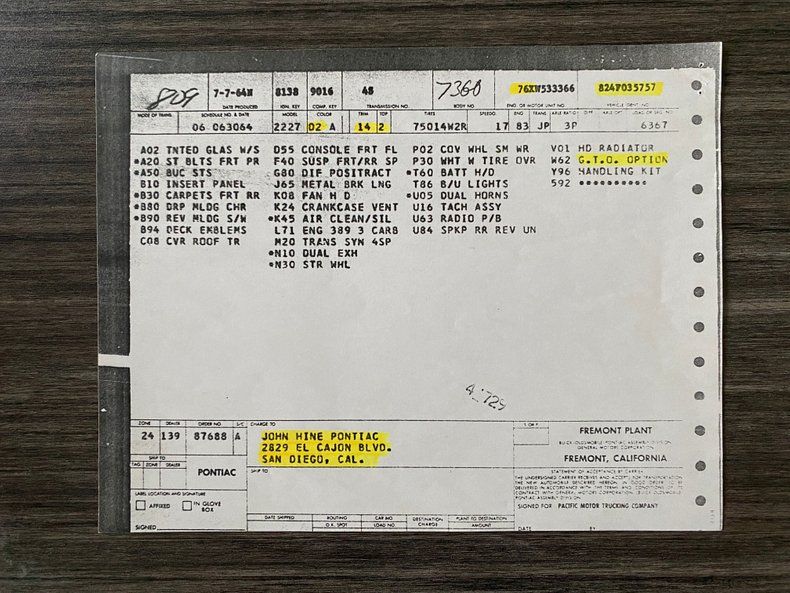 809 7-7-64W 8138 9016 48 7360 76XW533366 824F035757
DATE PRODUCED IGN. KEY COMP. KEY TRANSMISSION NO. BODY NO ENG. OR MOTOR UNIT NO. VEHICLE IDENT. NO.
MODE OF TRANS. SCHEDULE NO. & DATE MODEL COLOR TRIM TOP TIRES SPEEDO. ENG TRANS. AXLE RATIO
06 063064 2227 02 A 14 2 75014W2R 17 83 JP 3P 6367
A02 TNTED GLAS W/S D55 CONSOLE FRT FL P02 COV WHL SM WR V01 HD RADIATOR
*A20 ST BLTS FRT PR F40 SUSP FRT/RR SP P30 WHT W TIRE OVR W62 G.T.O. OPTION
*A50 BUC STS G80 DIF POSITRACT *T60 BATT H/D Y96 HANDLING KIT
B10 INSERT PANEL J65 METAL BRK LNG T86 B/U LIGHTS 592 **********
*B30 CARPETS FRT RR K08 FAN H D *U05 DUAL HORNS
*B80 DRP MLDG CHR K24 CRANKCASE VENT U16 TACH ASSY
*B90 REV MLDG S/W *K45 AIR CLEAN/SIL U63 RADIO P/B
B94 DECK EMBLEMS L71 ENG 389 3 CARB U84 SPKP RR REV UN
C08 CVR ROOF TR M20 TRANS SYN 4SP
*N10 DUAL EXH
*N30 STR WHL
ZONE DEALER ORDER NO S/C CHARGE TO
24 139 87688 A JOHN HINE PONTIAC
2829 EL CAJON BLVD.
SAN DIEGO, CAL.
SHIP TO
TAG ZONE DEALER
PONTIAC
SHIP TO
LABEL LOCATION AND SIGNATURE
AFFIXED IN GLOVE BOX
SIGNED
DATE SHIPPED ROUTING CAR NO DESTINATION CHARGE PLANT TO DESTINATION
O.K. SPOT LOAD NO. AMOUNT
1 OF 1
FREMONT PLANT
BUICK-OLDSMOBILE-PONTIAC ASSEMBLY DIVISION
GENERAL MOTORS CORPORATION
FREMONT, CALIFORNIA
STATEMENT OF ACCEPTANCE BY CARRIER
THE UNDERSIGNED CARRIER RECEIVES AND ACCEPTS FOR TRANSPORTATION
THE NEW AUTOMOBILE DESCRIBED HEREON IN GOOD ORDER TO BE
DELIVERED IN ACCORDANCE WITH THE TERMS AND CONDITIONS OF
CONTRACT WITH GENERAL MOTORS CORPORATION, BUICK OLDSMOBILE
PONTIAC ASSEMBLY DIVISION.
SIGNED FOR PACIFIC MOTOR TRUCKING COMPANY
DATE BY